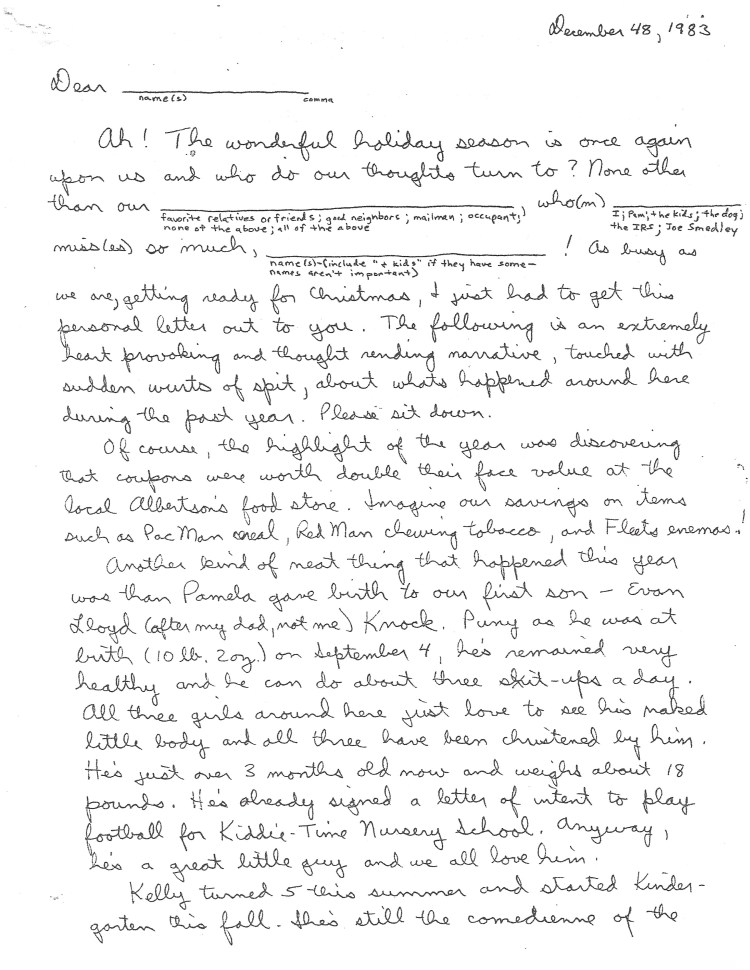 December 48, 1983
Dear
name(s) comma
Ah! The wonderful holiday season is once again
upon us and who do our thoughts turn to? None other
than our , who(m)
favorite relatives or friends; good neighbors; mailman; occupant;
none of the above; all of the above
I; Pam; the kids; the dog;
the IRS; Joe Smedley
miss(es) so much, ! As busy as
name(s)-(include "+ kids" if they have some-
names aren't important)
we are, getting ready for Christmas, I just had to get this
personal letter out to you. The following is an extremely
heart provoking and thought rending narrative, touched with
sudden wurts of spit, about whats happened around here
during the past year. Please sit down.
Of course, the highlight of the year was discovering
that coupons were worth double their face value at the
local Albertson's food store. Imagine our savings on items
such as Pac Man cereal, Red Man chewing tobacco, and Fleets enemas!
Another kind of neat thing that happened this year
was than Pamela gave birth to our first son - Evan
Lloyd (after my dad, not me) Knock. Puny as he was at
birth (10 lb. 2 oz.) on September 4, he's remained very
healthy and he can do about three skit-ups a day.
All three girls around here just love to see his naked
little body and all three have been christened by him.
He's just over 3 months old now and weighs about 18
pounds. He's already signed a letter of intent to play
football for Kiddie-Time Nursery School. Anyway,
he's a great little guy and we all love him.
Kelly turned 5 this summer and started Kinder-
garten this fall. She's still the comedienne of the